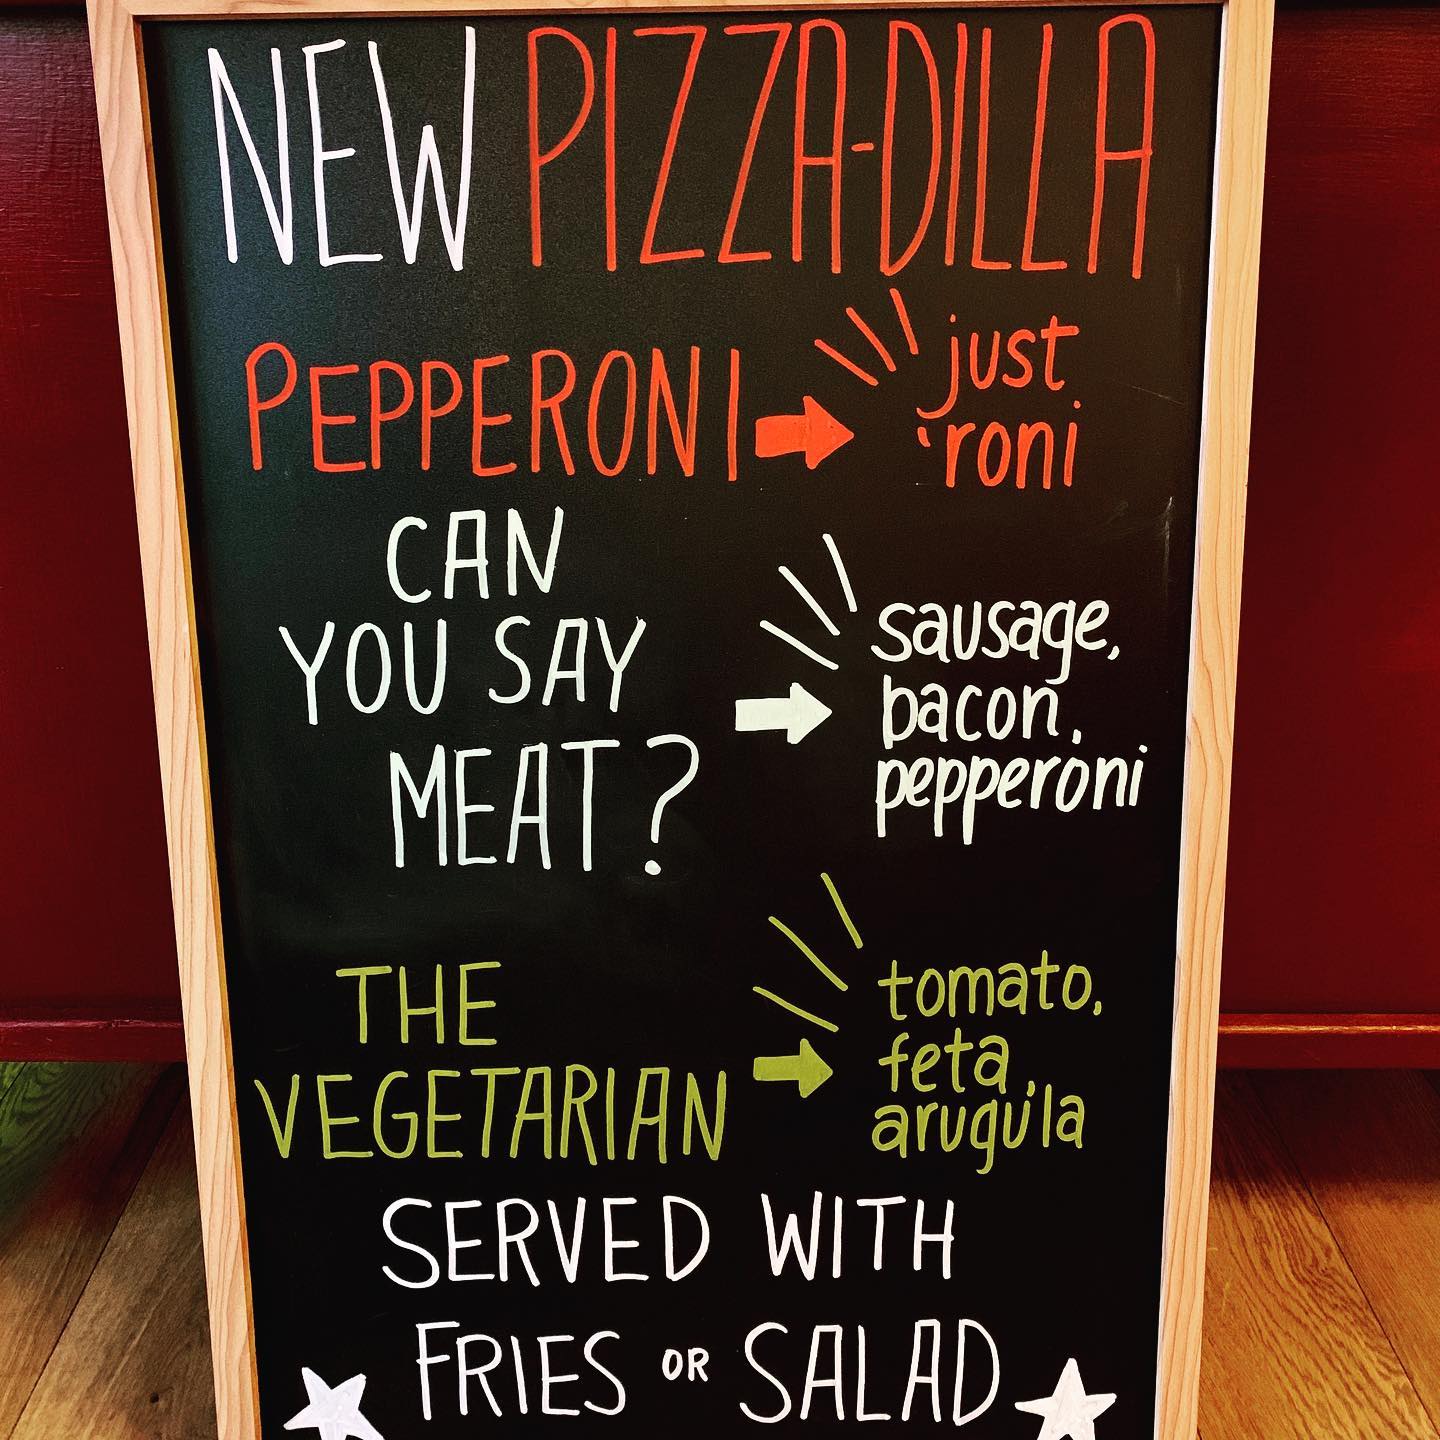 NEW PIZZA-DILLA
PEPPERONI
just
'roni
CAN
YOU SAY
MEAT?
sausage,
bacon,
pepperoni
THE
VEGETARIAN
tomato,
feta,
arugula
SERVED WITH
FRIES OR SALAD